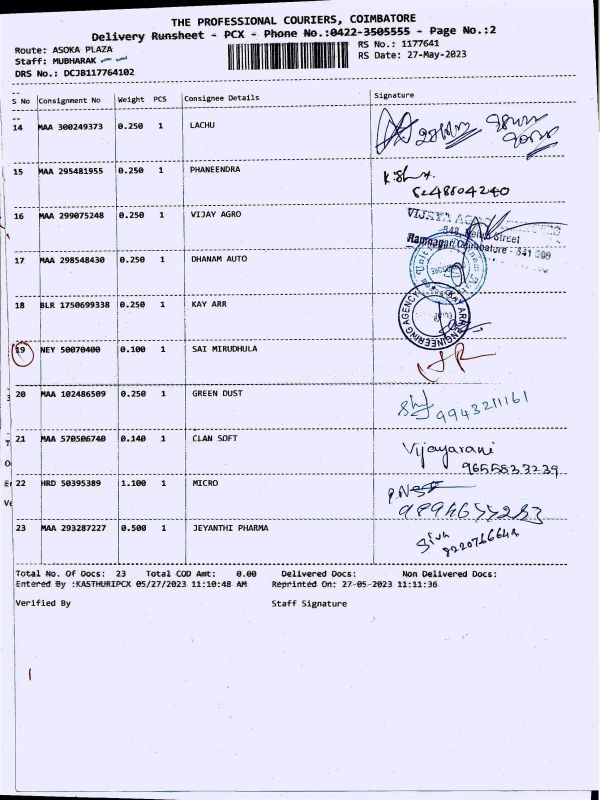 THE PROFESSIONAL COURIERS, COIMBATORE
Delivery Runsheet - PCX - Phone No.:0422-3505555 - Page No.:2
Route: ASOKA PLAZA
Staff: MUBHARAK
DRS No.: DCJB117764102
RS No.: 1177641
RS Date: 27-May-2023
S No Consignment No Weight PCS Consignee Details Signature
14 MAA 300249373 0.250 1 LACHU
15 MAA 295481955 0.250 1 PHANEENDRA
16 MAA 299075248 0.250 1 VIJAY AGRO
17 MAA 298548430 0.250 1 DHANAM AUTO
18 BLR 1750699338 0.250 1 KAY ARR
KAY ARR ENGINEERING AGENCY
19 NEY 50070400 0.100 1 SAI MIRUDHULA
20 MAA 102486509 0.250 1 GREEN DUST
9943211161
21 MAA 570506740 0.140 1 CLAN SOFT
Vijayarani
9655833239
22 HRD 50395389 1.100 1 MICRO
23 MAA 293287227 0.500 1 JEYANTHI PHARMA
Siva
Total No. Of Docs: 23 Total COD Amt: 0.00 Delivered Docs: Non Delivered Docs:
Entered By :KASTHURIPCX 05/27/2023 11:10:48 AM Reprinted On: 27-05-2023 11:11:36
Verified By Staff Signature